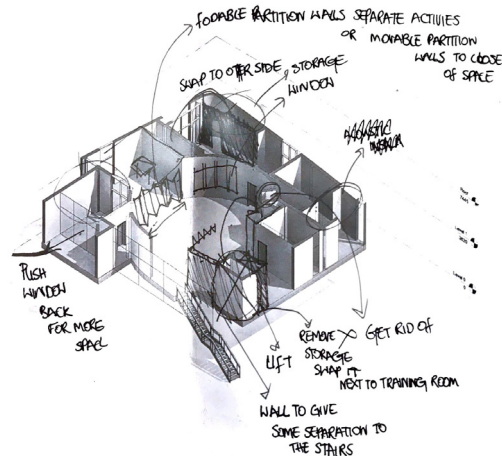 FODABLE PARTITION WALLS SEPARATE ACTIVIES
OR MOVABLE PARTITION
WALLS TO CLOSE
OF SPACE
SWAP TO OTHER SIDE
STORAGE
WINDOW
PUSH
WINDOW
BACK
FOR MORE
SPACE
LIFT
REMOVE
STORAGE
SWAP IT
NEXT TO TRAINING ROOM
GET RID OF
WALL TO GIVE
SOME SEPARATION TO
THE STAIRS